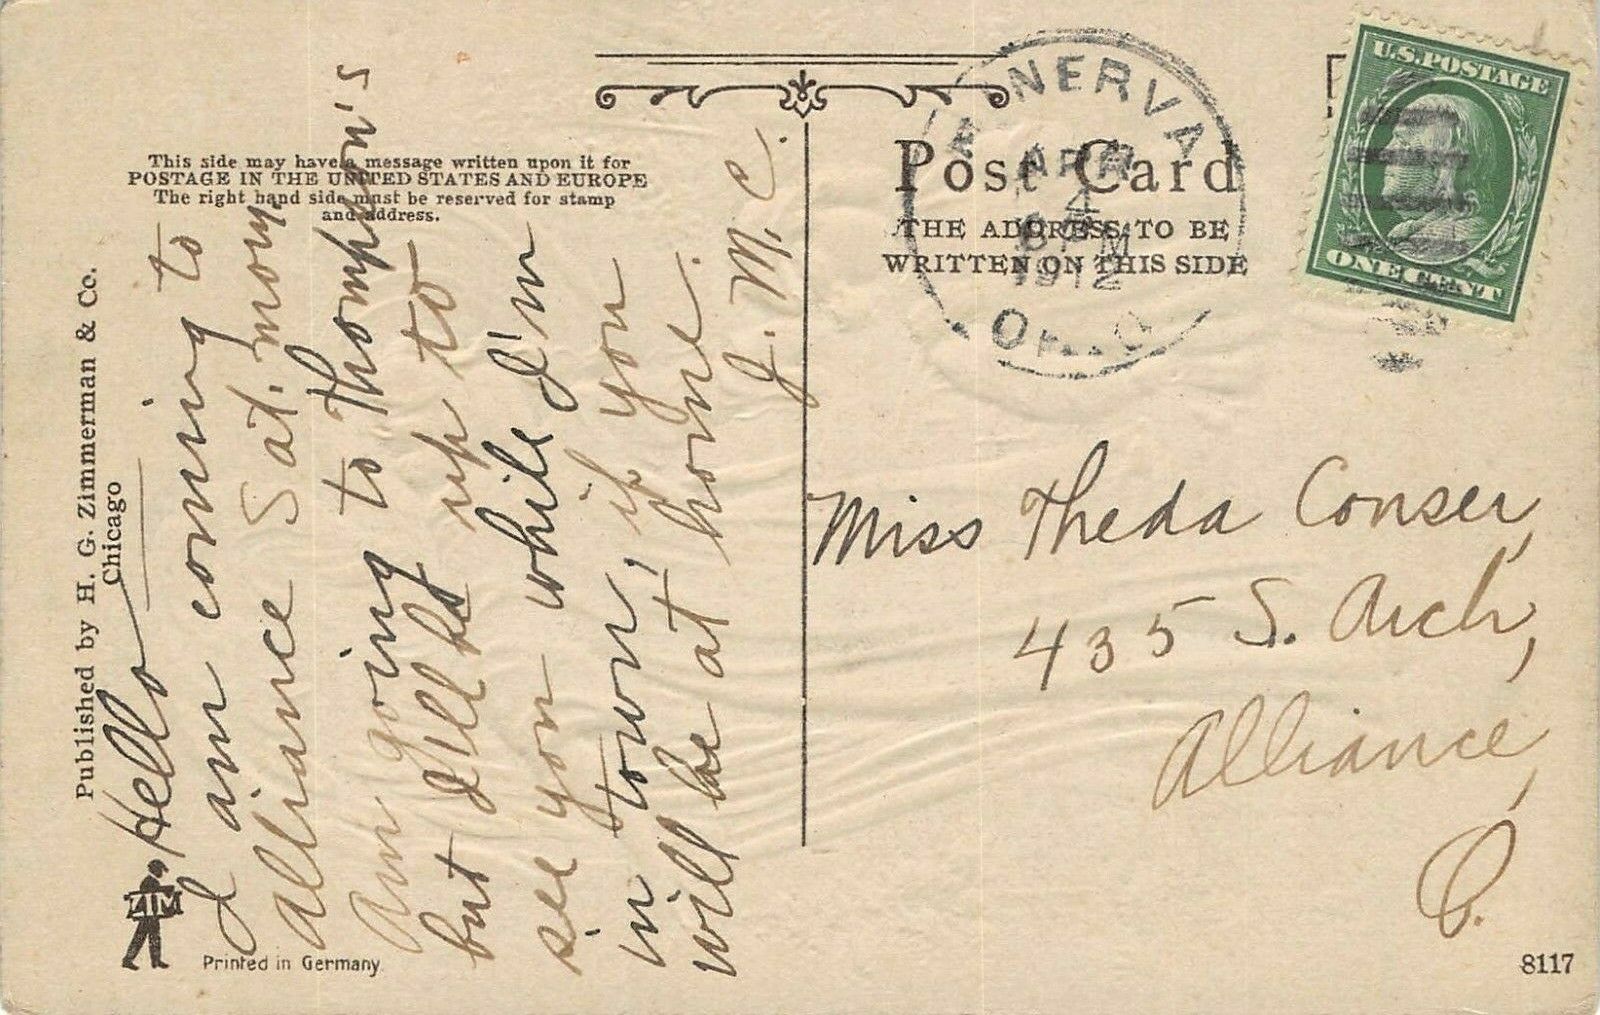 This side may have a message written upon it for
POSTAGE IN THE UNITED STATES AND EUROPE
The right hand side must be reserved for stamp
and address.
Published by H. G. Zimmerman & Co.
Chicago
Hello
I am coming to
Alliance Sat. morn
Am going to Thompson's
but I'll be up to
see you while I'm
in town, if you
will be at home.
J. M. C.
ZIM
Printed in Germany
Post Card
THE ADDRESS TO BE
WRITTEN ON THIS SIDE
MINERVA
APR
4
PM
1912
OHIO
U.S. POSTAGE
ONE CENT
Miss Theda Conser,
435 S. Arch,
Alliance,
O.
8117